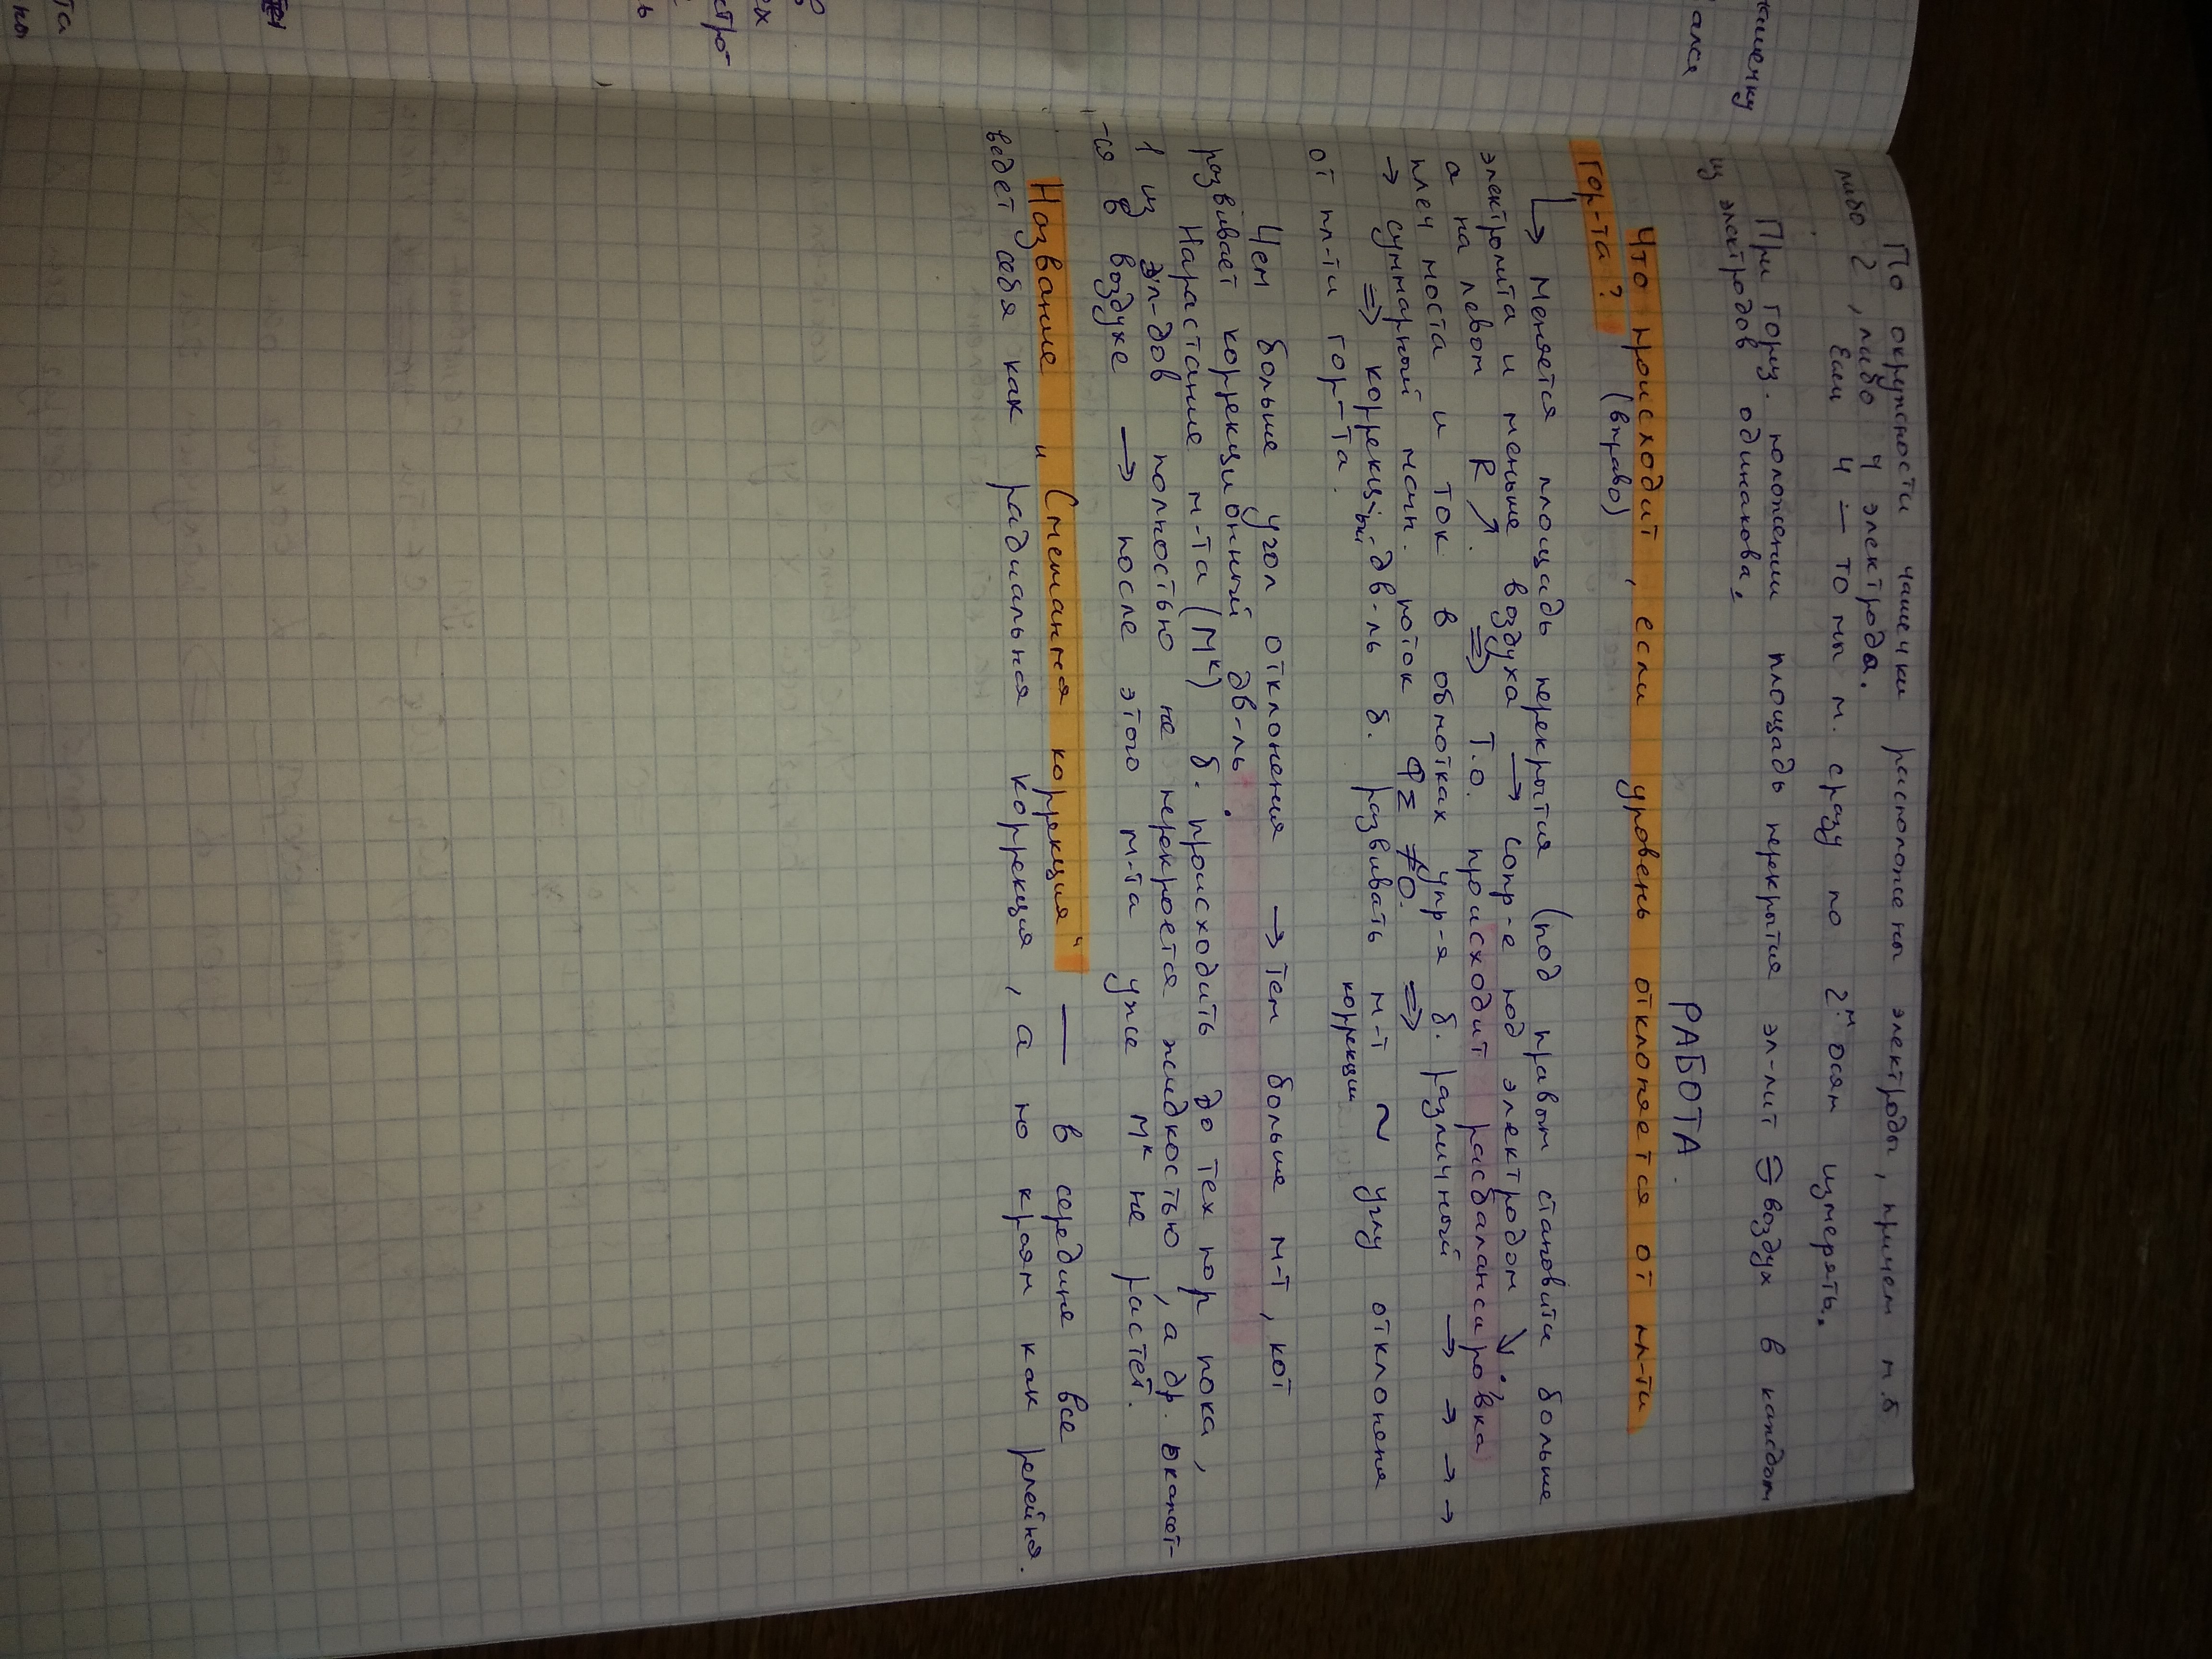 По окружности чашечки расположены электроды, причем м.б
либо 2, либо 4 электрода.
Если 4 — то мы м. сразу по 2м осям измерять.
При гориз. положении площадь перекрытия эл-лит воздух в каждом
из электродов одинакова.
РАБОТА.
Что происходит, если уровень отклоняется от пл-ти
гор-та? (вправо)
↳ Меняется площадь перекрытия (под правым становится больше
электролита и меньше воздуха → сопр-е под электродом ↘,
а на левом R ↗. ⟹ Т.О. происходит расбалансировка
плеч моста и ток в обмотках упр-я б. различный → → → →
→ суммарный магн. поток ФΣ ≠ 0. ⟹
⟹ коррекц-ый дв-ль б. развивать м-т коррекции ~ углу отклонения
от пл-ти гор-та.
Чем больше угол отклонения → тем больше м-т, кот
развивает коррекционный дв-ль.
Нарастание м-та (Mк) б. происходить до тех пор пока,
1 из эл-дов полностью не перекроется жидкостью, а др. окажет-
-ся в воздухе → после этого м-та уже Mк не растет.
Название „Смешанная коррекция" — в середине все
ведет себя как радиальная коррекция, а по краям как релейная.
кишенку
ался
стро-
ех
ь
та
ны